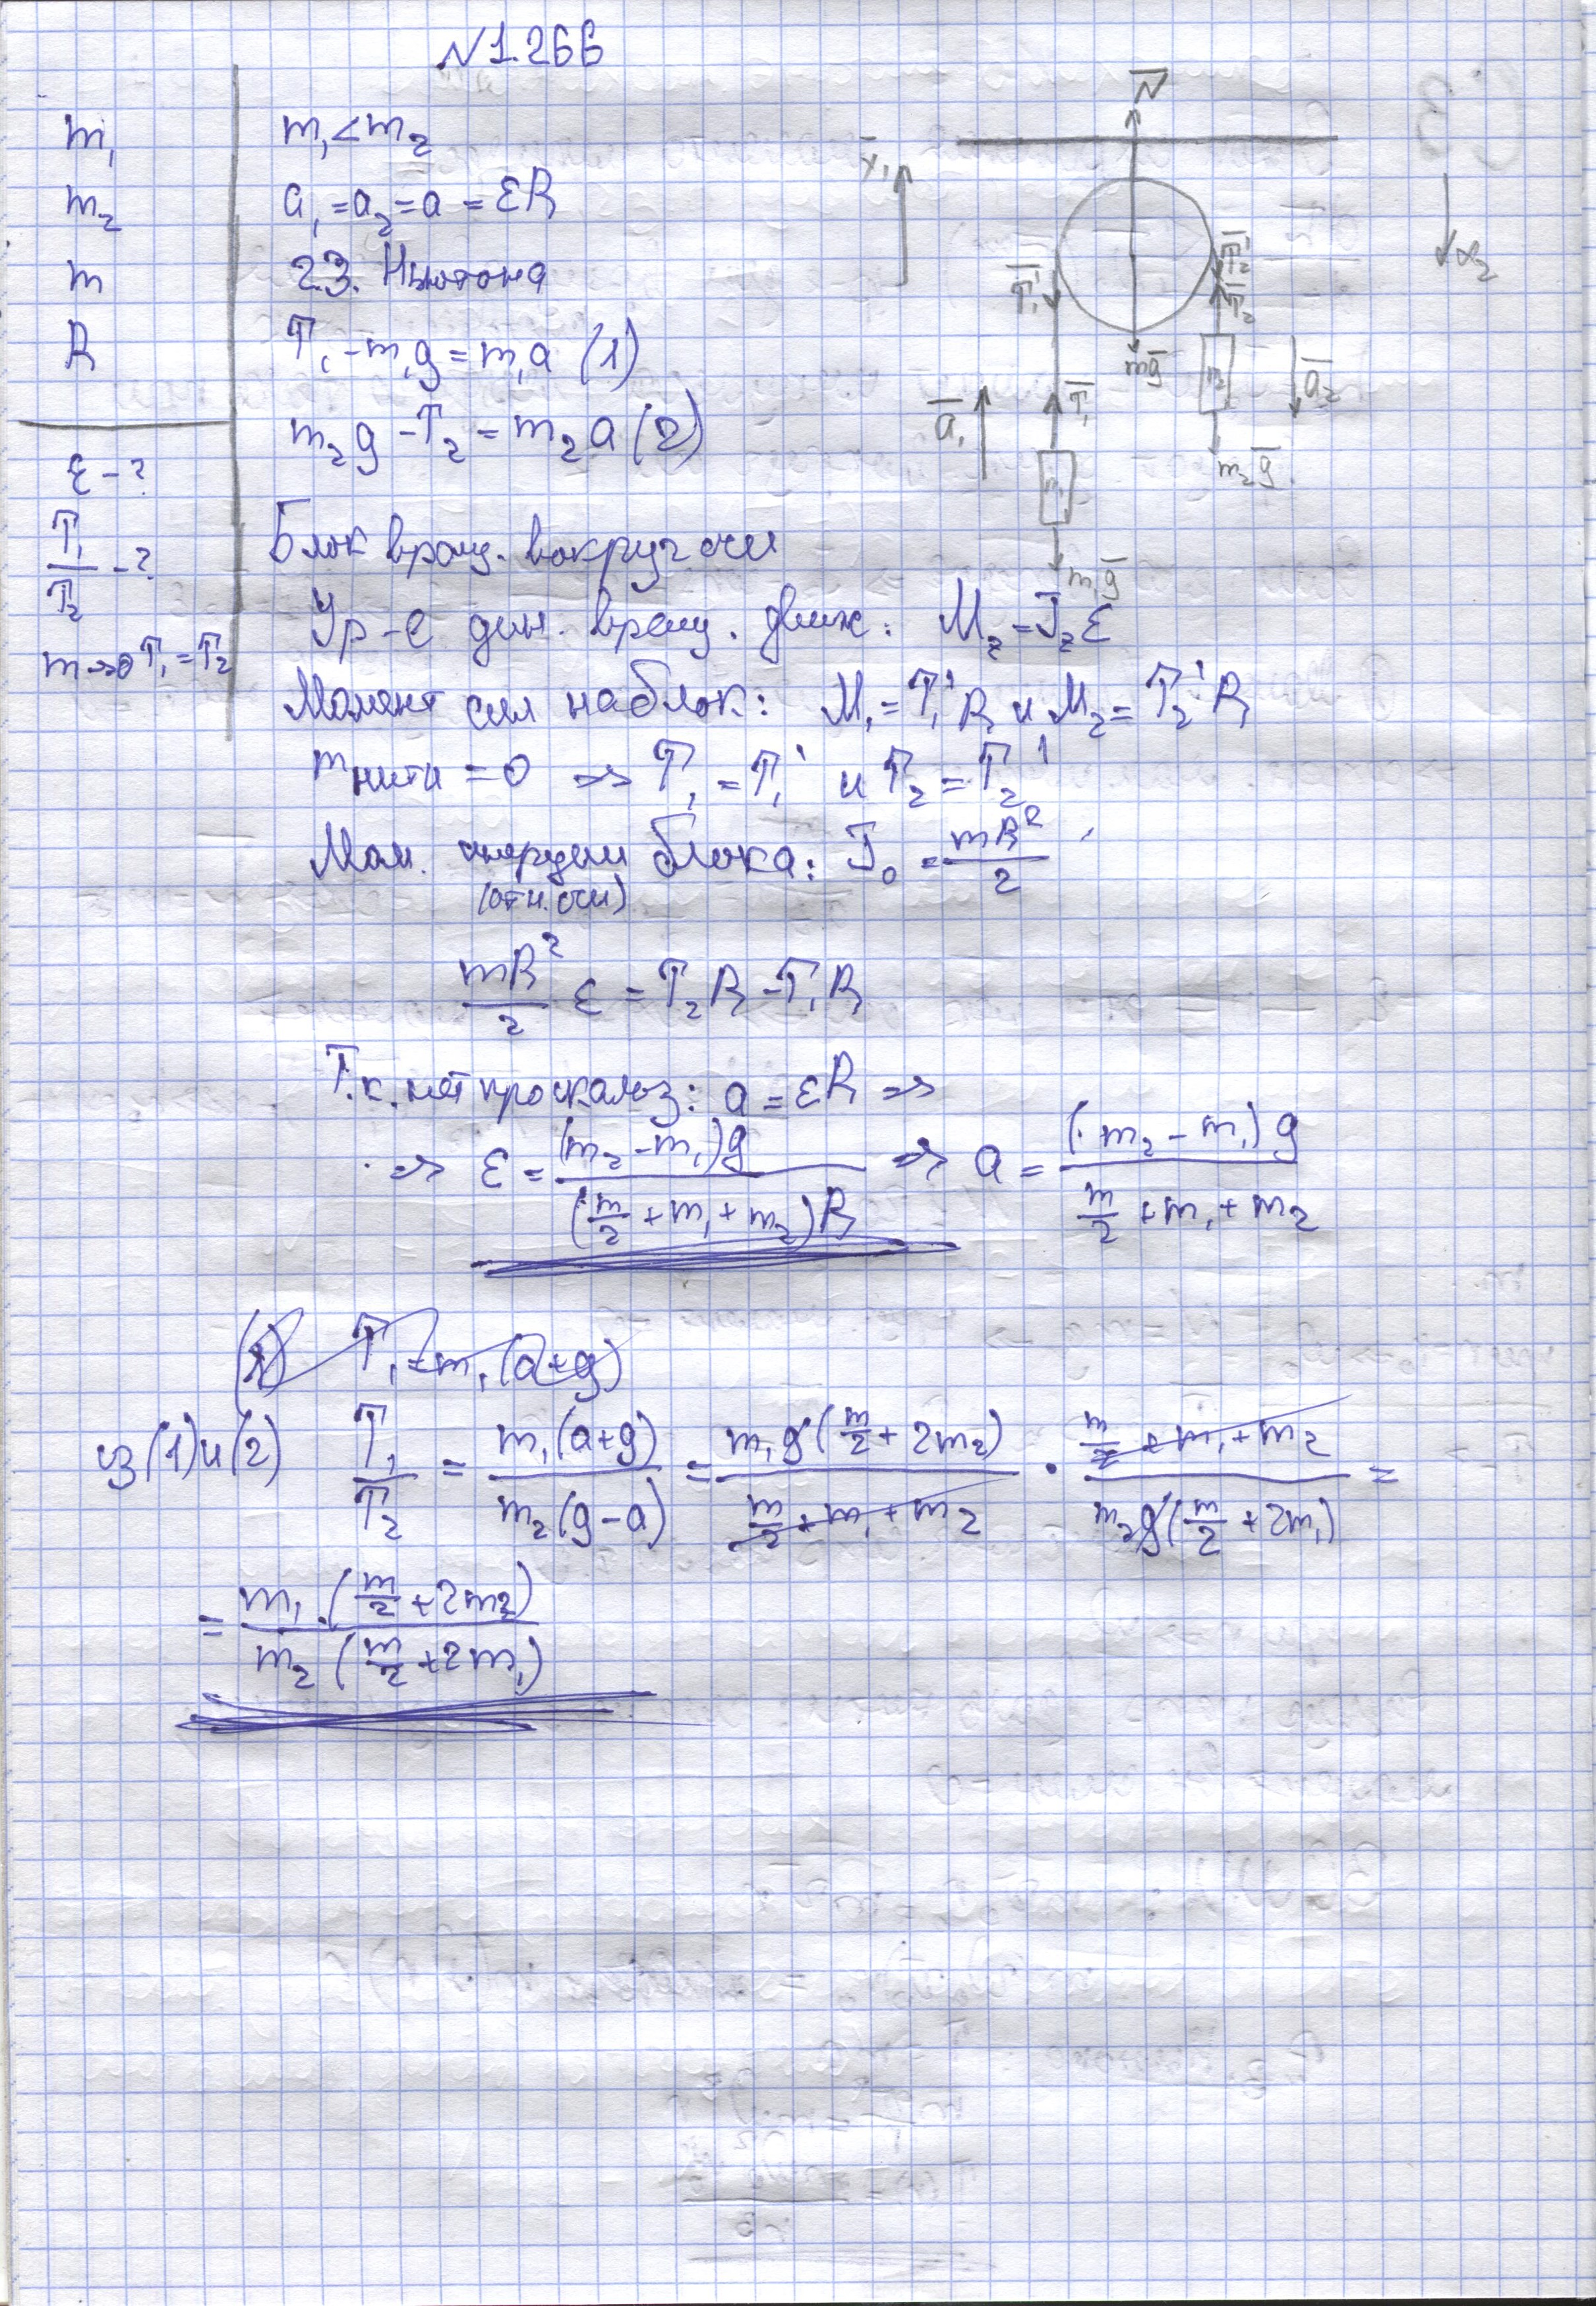 N 1.266
m₁
m₂
m
R
ε - ?
T₁/T₂ - ?
m→0 T₁ = T₂
m₁ < m₂
a₁ = a₂ = a = εR
2 З. Ньютона
T₁ - m₁g = m₁a (1)
m₂g - T₂ = m₂a (2)
Блок вращ. вокруг оси
Ур-е дин. вращ. движ: M_z = J_z ε
Момент сил на блок: M₁ = T₁' R и M₂ = T₂' R
m нити = 0 => T₁ = T₁' и T₂ = T₂'
Мом. инерции блока: J₀ = mR²/2
(отн. оси)
mR²/2 ε = T₂R - T₁R
Т.к. нет проскальз: a = εR =>
=> ε = (m₂ - m₁)g / (m/2 + m₁ + m₂)R => a = (m₂ - m₁)g / m/2 + m₁ + m₂
(1) T₁ = m₁(a+g)
из (1) и (2) T₁/T₂ = m₁(a+g) / m₂(g-a) = m₁g(m/2 + 2m₂) / m/2 + m₁ + m₂ · m/2 + m₁ + m₂ / m₂g(m/2 + 2m₁) =
= m₁·(m/2 + 2m₂) / m₂(m/2 + 2m₁)
N̄
x₁
x₂
T̄₁'
T̄₂'
T̄₂
mḡ
m₂
ā₂
ā₁
T̄₁
m₂ḡ
m₁
m₁ḡ